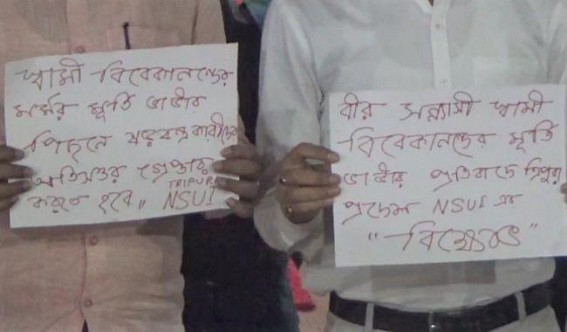 স্বামী বিবেকানন্দের
মর্মর মূর্তি ভাঙার
পিছনে ষড়যন্ত্রকারীদের
অতিসত্তর গ্রেপ্তার
করতে হবে॥ TRIPURA
NSUI
বীর সন্ন্যাসী স্বামী
বিবেকানন্দের মূর্তি
ভাঙার প্রতিবাদে ত্রিপুরা
প্রদেশ NSUI এর
"বিক্ষোভ"